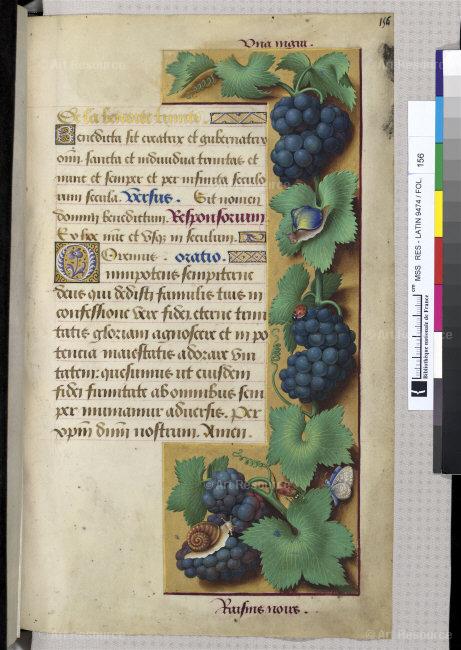 156
Vua maiu.
De la benoiste trinite.
Benedicta sit creatrix et gubernatrix
omn. sancta et individua trinitas et
nunc et semper et per infinita seculo
rum secula. Versus. Sit nomen
domini benedictum. Responsorium.
Ex hoc nūc et usq; in seculum.
Oremus. oratio.
Omnipotens sempiterne
deus qui dedisti famulis tuis in
confessione vere fidei eterne trini
tatis gloriam agnoscere et in po
tencia maiestatis adorare vni
tatem: quesumus ut eiusdem
fidei firmitate ab omnibus sem
per muniamur adversis. Per
xpm dnm nostrum. Amen.
Raisins noirs.
MSS RES - LATIN 9474 / FOL. 156
Bibliothèque nationale de France
cm
© Art Resource
© Art Resource
© Art Resource
© Art Resource
© Art Resource